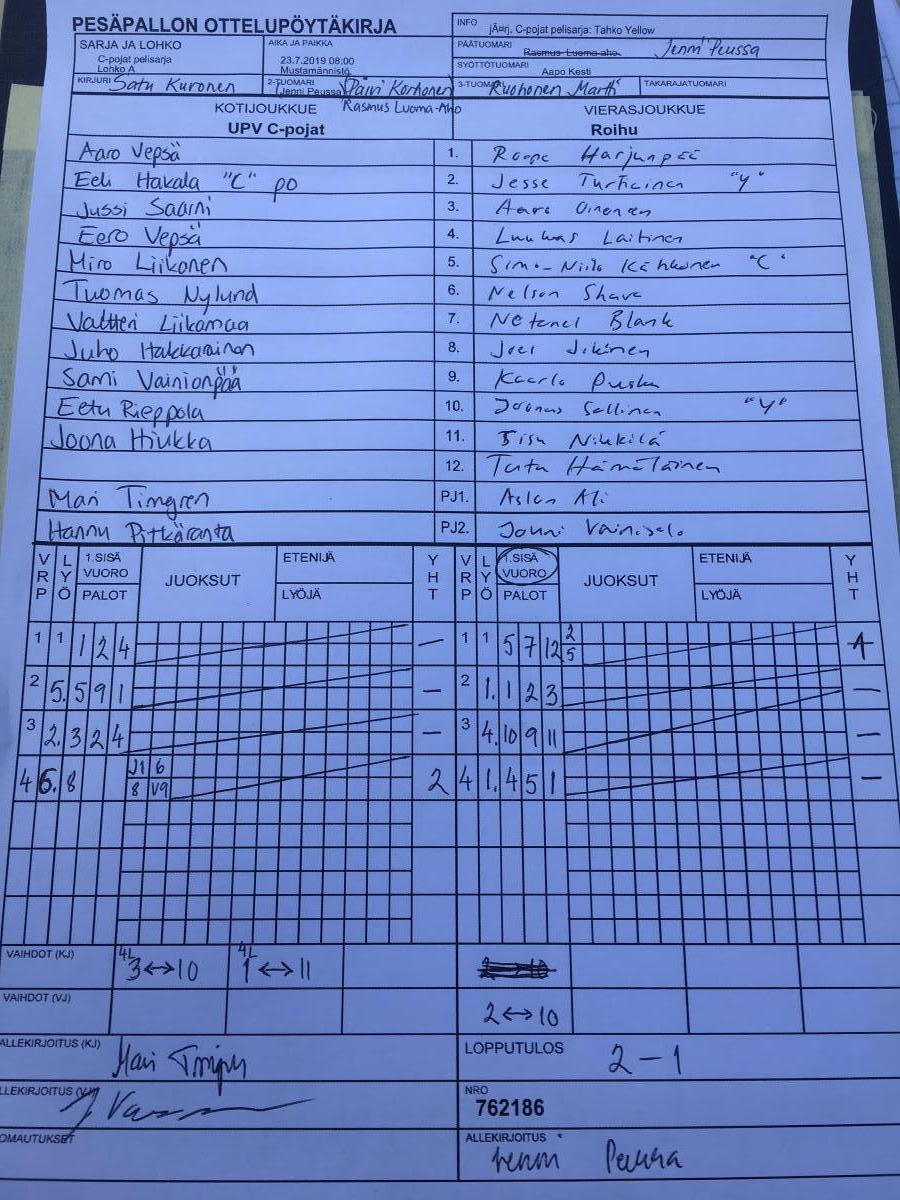 PESÄPALLON OTTELUPÖYTÄKIRJA
INFO jÃ¤rj. C-pojat pelisarja: Tahko Yellow
SARJA JA LOHKO C-pojat pelisarja Lohko A
AIKA JA PAIKKA 23.7.2019 08:00 Mustamännistö
PÄÄTUOMARI Rasmus Luoma-aho Jenni Peussa
SYÖTTÖTUOMARI Aapo Kesti
KIRJURI Satu Kuronen
2-TUOMARI Jenni Peussa Päivi Korhonen Rasmus Luoma-Aho
3-TUOMARI Ruohonen Martti
TAKARAJATUOMARI
KOTIJOUKKUE UPV C-pojat
VIERASJOUKKUE Roihu
Aaro Vepsä 1. Roope Harjunpää
Eeli Hakala "C" po 2. Jesse Turtiainen "Y"
Jussi Saarni 3. Aaro Oinonen
Eero Vepsä 4. Luukas Laitinen
Miro Liikonen 5. Simo-Niilo Kähkönen "C"
Tuomas Nylund 6. Nelson Share
Valtteri Liikamaa 7. Netanel Blank
Juho Hakkarainen 8. Joel Jokinen
Sami Vainionpää 9. Kaarlo Puska
Eetu Rieppola 10. Joonas Sallinen "Y"
Joona Hiukka 11. Nikkilä
12. Hämäläinen
Mari Timgren PJ1. Aslan Ali
Hannu Pitkäranta PJ2. Jouni Vainisalo
VRP LYÖ 1.SISÄ VUORO PALOT JUOKSUT ETENIJÄ LYÖJÄ YHT VRP LYÖ 1.SISÄ VUORO PALOT JUOKSUT ETENIJÄ LYÖJÄ YHT
1 1 1 2 4 — 1 1 5 7 12 2 5 1
2 5. 5 9 1 — 2 1. 1 2 3 —
3 2. 3 2 4 — 3 4. 10 9 11 —
4 6. 8 J1 6 8 V9 2 4 1. 4 5 1 —
VAIHDOT (KJ) 4L 3↔10 4L 1↔11
VAIHDOT (VJ) 2↔10
ALLEKIRJOITUS (KJ) Mari
LOPPUTULOS 2 – 1
LLEKIRJOITUS (VJ)
NRO 762186
OMAUTUKSET
ALLEKIRJOITUS Jenni Peussa